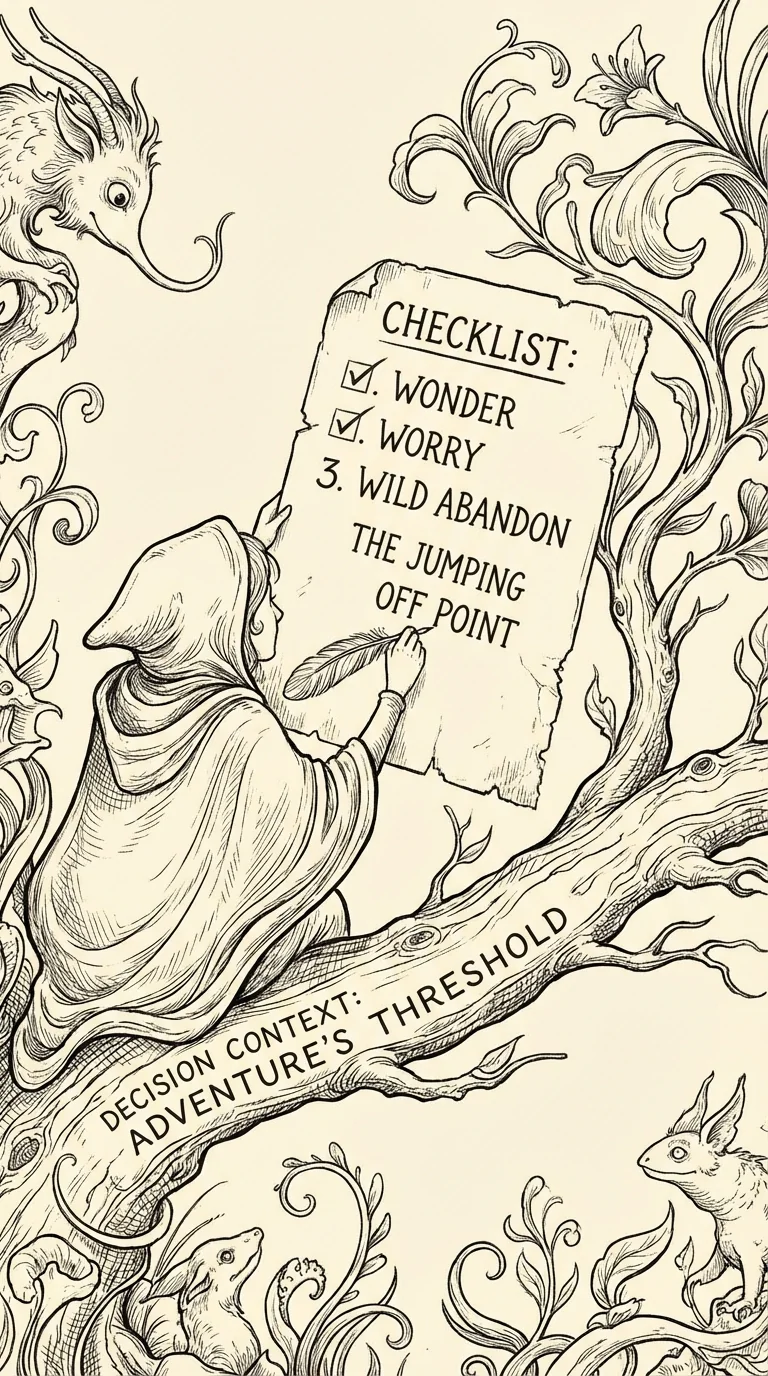 CHECKLIST:
☑. WONDER
☑. WORRY
3. WILD ABANDON
THE JUMPING
OFF POINT
DECISION CONTEXT:
ADVENTURE'S THRESHOLD